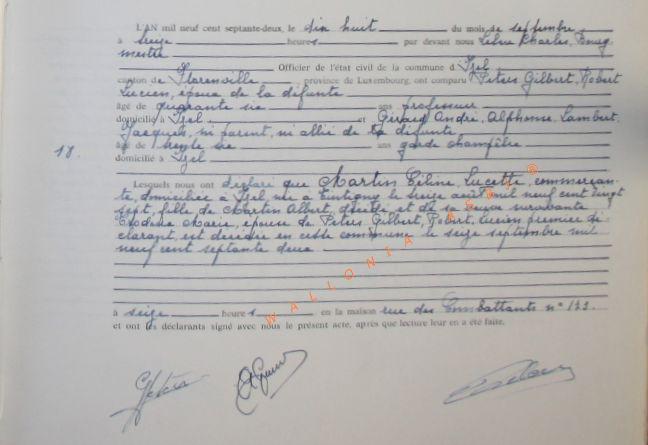 L'AN mil neuf cent septante-deux, le dix huit du mois de septembre
à seize heures par devant nous Charles, Bourg
mestre
Officier de l'état civil de la commune d'Izel
canton de Florenville, province de Luxembourg, ont comparu Peters Gilbert, Robert
Lucien, époux de la défunte
âgé de quarante six ans professeur
domicilié à Izel et Girard André, Alphonse, Lambert,
Jacques, ni parent, ni allié de la défunte
18. âgé de ans garde champêtre
domicilié à Izel
Lesquels nous ont déclaré que Martin Céline, Lucette, commerçan-
te, domiciliée à Izel née à Tintigny le seize août mil neuf cent vingt
sept, fille de Martin Albert, décédé et de sa veuve survivante
Marie, épouse de Peters Gilbert, Robert, Lucien premier dé-
clarant, est décédée en cette commune le seize septembre mil
neuf cent septante deux
à seize heures en la maison rue des Combattants n°
et ont les déclarants signé avec nous le présent acte, après que lecture leur en a été faite.
WALLONIA ASBL ®